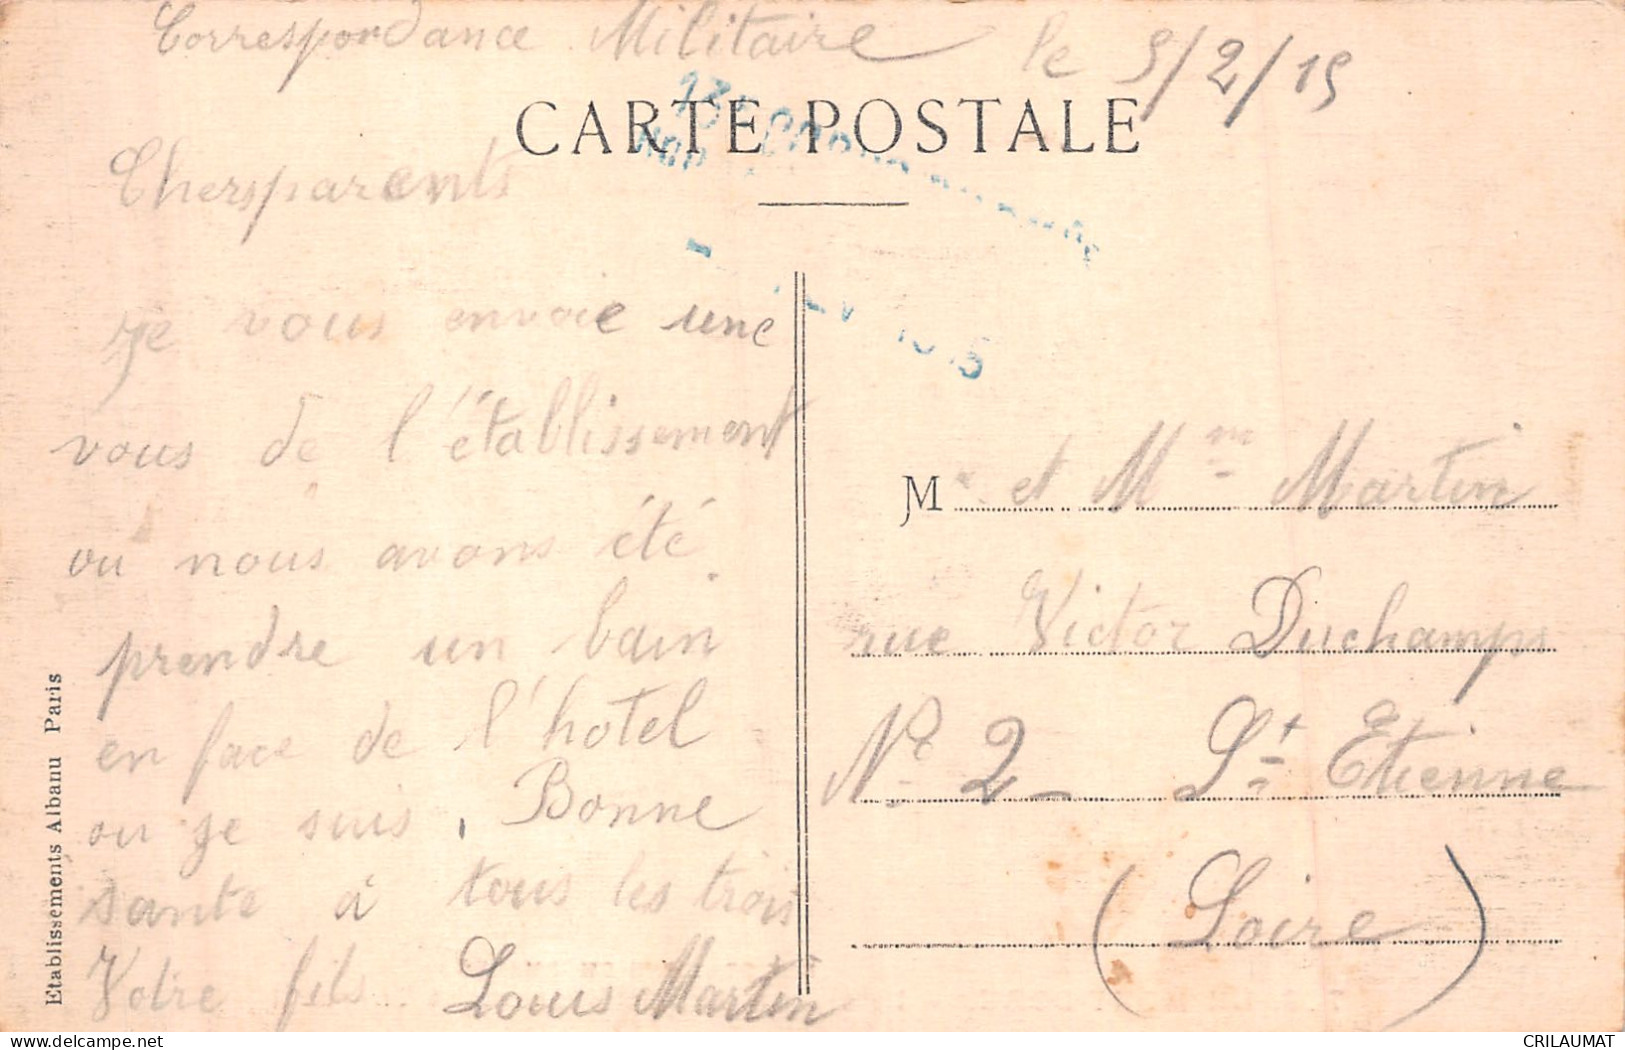 Correspondance Militaire le 5/2/15
CARTE POSTALE
Chers parents
Je vous envoie une
vous de l'établissement
ou nous avons été
prendre un bain
en face de l'hotel
ou je suis. Bonne
sante à tous les trois
Votre fils Louis Martin
Mr et Mme Martin
rue Victor Duchamps
No 2 St Etienne
(Loire)
Etablissements Albanu Paris
delcampe.net
CRILAUMAT